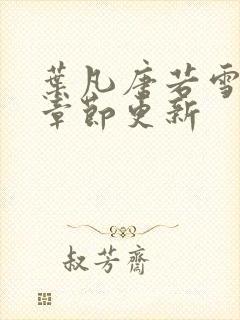 葉凡唐若雪
章節更新
叔芳齋